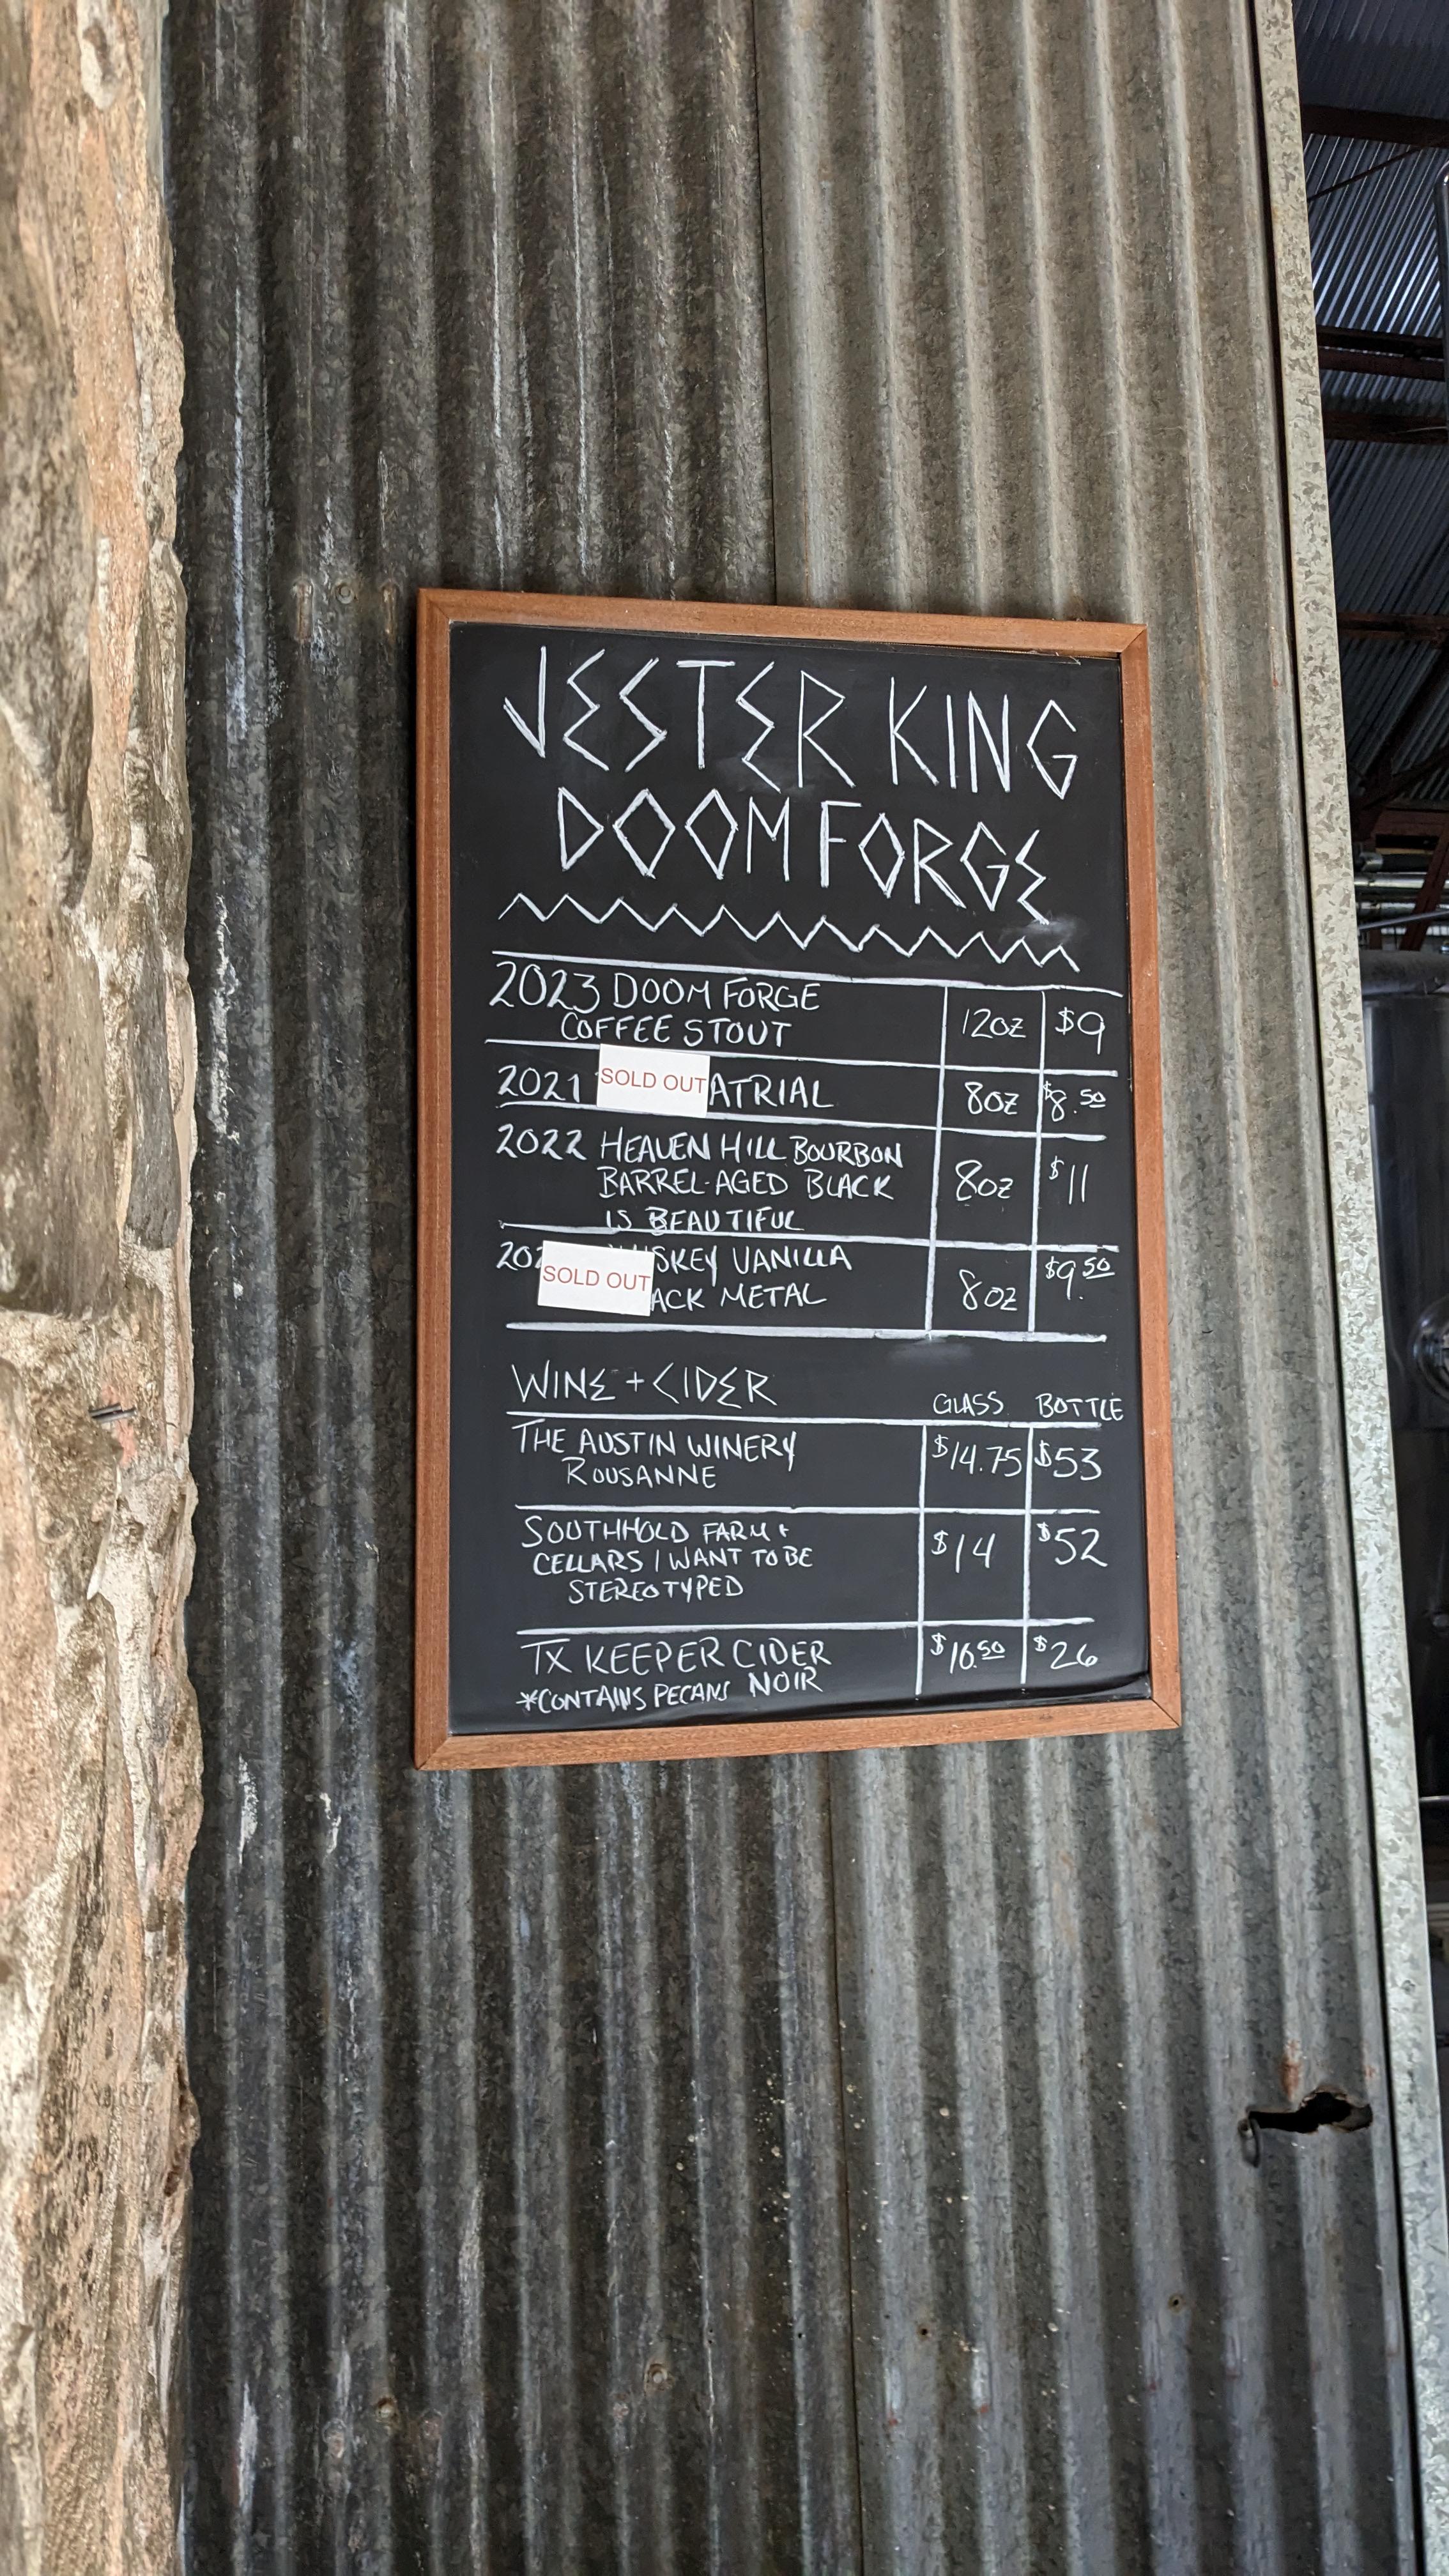 JESTER KING
DOOM FORGE
2023 DOOM FORGE
COFFEE STOUT
12oz $9
2021 SOLD OUT ATRIAL 8oz $8.50
2022 HEAVEN HILL BOURBON
BARREL-AGED BLACK
IS BEAUTIFUL
8oz $11
SOLD OUT VANILLA
METAL
8oz $9.50
WINE + CIDER
GLASS BOTTLE
THE AUSTIN WINERY
ROUSANNE
$14.75 $53
SOUTHHOLD FARM +
CELLARS I WANT TO BE
STEREOTYPED
$14 $52
TX KEEPER CIDER
NOIR
*CONTAINS PECANS
$10.50 $26